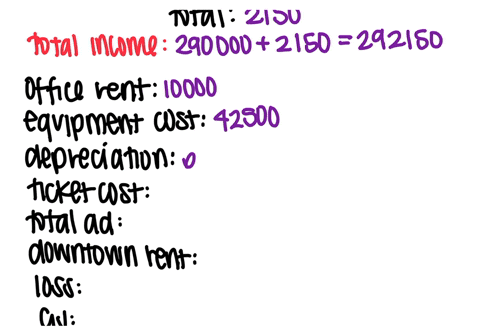 Total: 2150
total income: 290000 + 2150 = 292150
office rent: 10000
equipment cost: 42500
depreciation: 0
ticket cost:
total ad:
downtown rent:
loss: